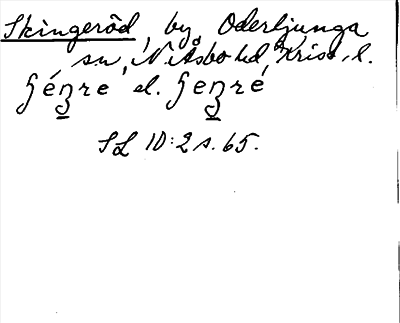 Skingeröd, by, Oderljunga
sn, N Åsbo hd, Krist. l.
ʃéŋ̠re el. ʃeŋ̠ré
SL 10:2 s. 65.